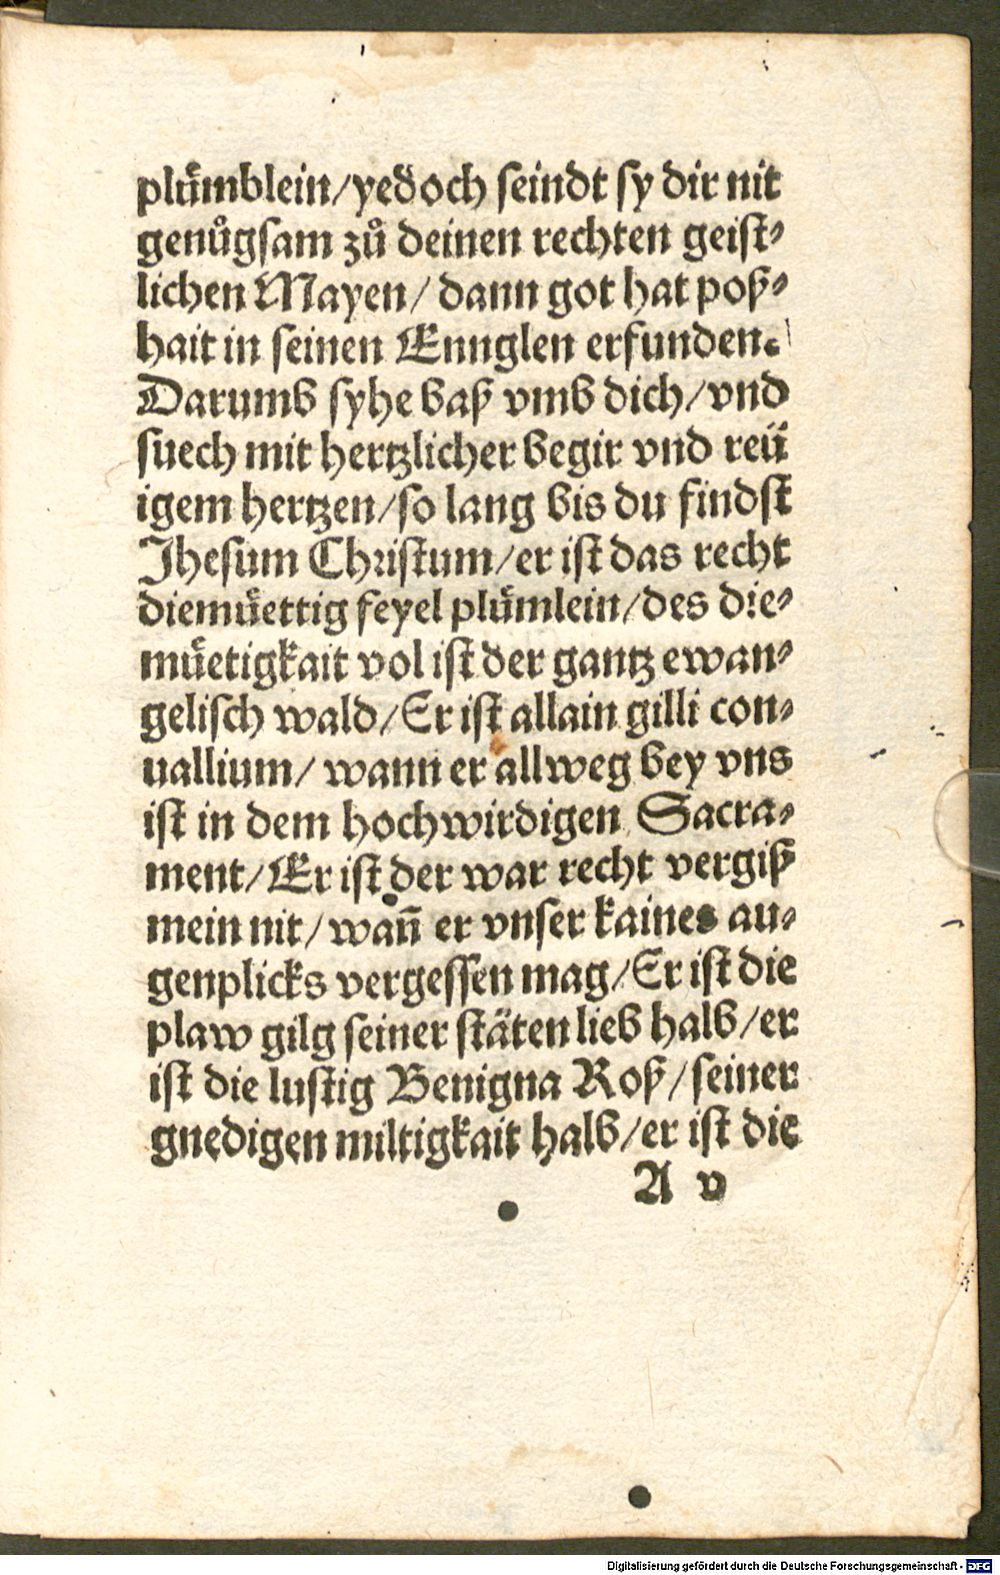 pluͤmblein/yedoch seindt sy dir nit
genuͦgsam zuͦ deinen rechten geist⸗
lichen Mayen/ dann got hat poß⸗
hait in seinen Ennglen erfunden.
Darumb syhe baß vmb dich/vnd
suech mit hertzlicher begir vnd reuͤ
igem hertzen/so lang bis du findst
Jhesum Christum/er ist das recht
diemuͤettig feyel pluͤmlein/des die⸗
muͤetigkait vol ist der gantz ewan⸗
gelisch wald/Er ist allain gilli con⸗
uallium/ wann er allweg bey vns
ist in dem hochwirdigen Sacra⸗
ment/Er ist der war recht vergiß
mein nit/wan̄ er vnser kaines au⸗
genplicks vergessen mag/Er ist die
plaw gilg seiner stäten lieb halb/er
ist die lustig Benigna Roß/seiner
gnedigen miltigkait halb/er ist die
A v
Digitalisierung gefördert durch die Deutsche Forschungsgemeinschaft - DFG